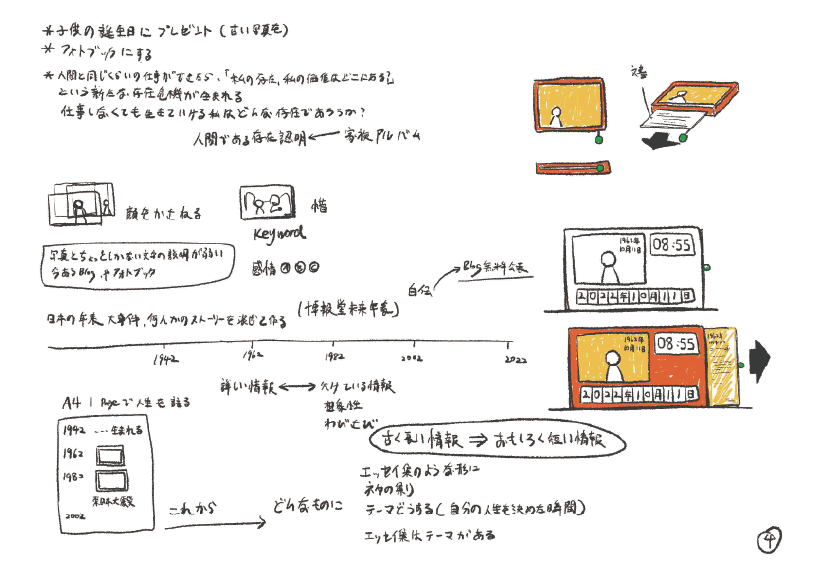 *子供の誕生日にプレゼント(古い写真を)
*フォトブックにする
*人間と同じくらいの仕事ができたら、「私の存在、私の価値はどこにある?」
という新たな存在危機が生まれる
仕事しなくても生きていける私はどんな存在であろうか?
人間である存在証明 ← 家族アルバム
文書
顔をかさねる
Keyword
写真とちょっとしかない文字の説明が弱い
今あるBlog やフォトブック
感情
自伝
Blog 無料公表
日本の年表、大事件、何人かのストーリーを混ぜて作る
(博報堂未来年表)
1942
1962
1982
2002
2022
詳い情報 ↔ 欠けている情報
想像性
わびさび
A4 1 Pageで人生を語る
1942 ・・・生まれる
1962
1982
東日本大震災
2002
すく長い情報 ⇒ おもしろく短い情報
エッセイ集のような形に
テーマどうする(自分の人生を決めた瞬間)
エッセイ集はテーマがある
これから
どんなものに
1962年
10月11日
08:55
2022年10月11日
1962年
10月11日
08:55
2022年10月11日
4